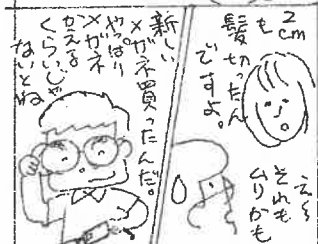 2cm
も
髪切ったん
ですよ。
え〜
それも
ムリかも
新しい
メガネ買ったんだ。
やっぱり
メガネ
かえる
くらいじゃ
ないとね